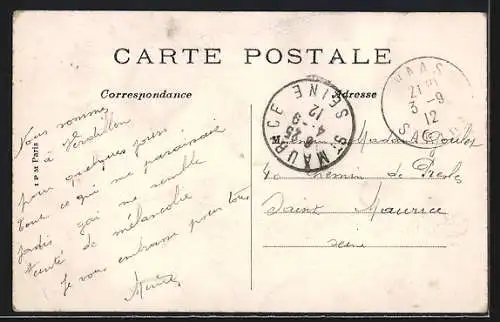 CARTE POSTALE
Correspondance
Adresse
Nous sommes
à Verdillon
pour quelques jours
tout ce qui me paraissait
jadis gai me semble
teinté de mélancolie
Je vous embrasse pour tous
I P M Paris
ST MAURICE SEINE
6 25
4 - 9
12
VAAS
21
3 - 9
12
SARTHE
Monsieur Madame
40 Chemin de
Saint Maurice
Seine